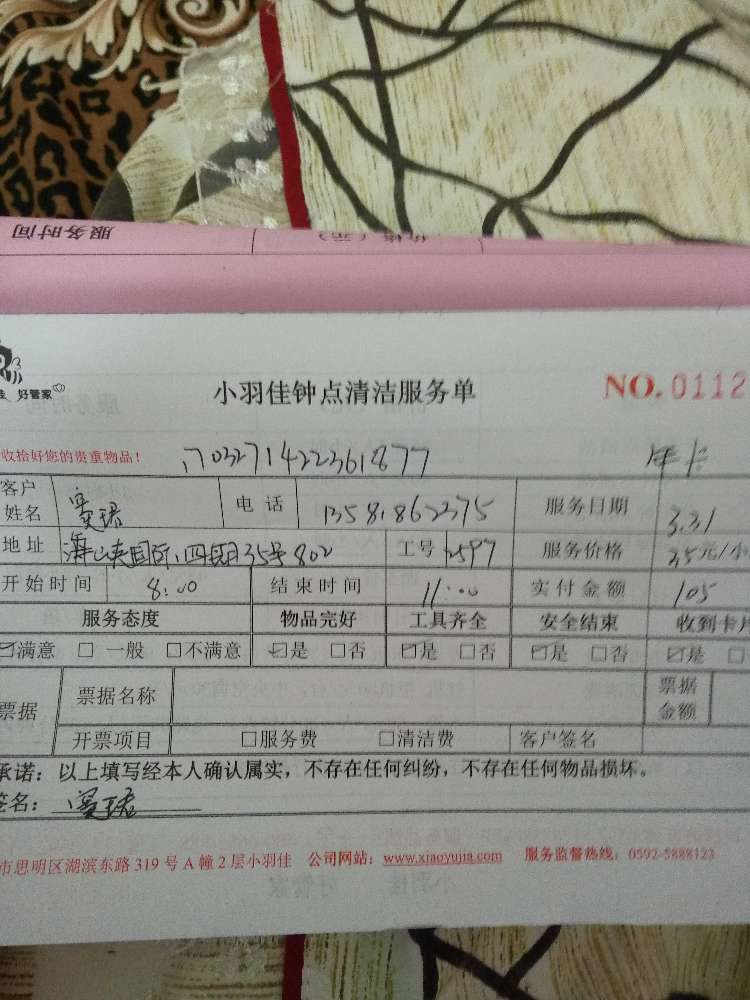 服务时间 价格（元）
好管家
小羽佳钟点清洁服务单 NO.0112
收拾好您的贵重物品！ 1703271422361877 年卡
客户姓名 电话 服务日期 3.31
地址 海峡国际四期35号802 工号 2597 服务价格 35元/小
开始时间 8:00 结束时间 11:00 实付金额 105
服务态度 物品完好 工具齐全 安全结束 收到卡片
☑满意 □一般 □不满意 ☑是 □否 ☑是 □否 ☑是 □否 ☑是 □
票据 票据名称 票据金额
开票项目 □服务费 □清洁费 客户签名
承诺：以上填写经本人确认属实，不存在任何纠纷，不存在任何物品损坏。
签名：
市思明区湖滨东路319号A幢2层小羽佳 公司网站：www.xiaoyujia.com 服务监督热线：0592-5888123